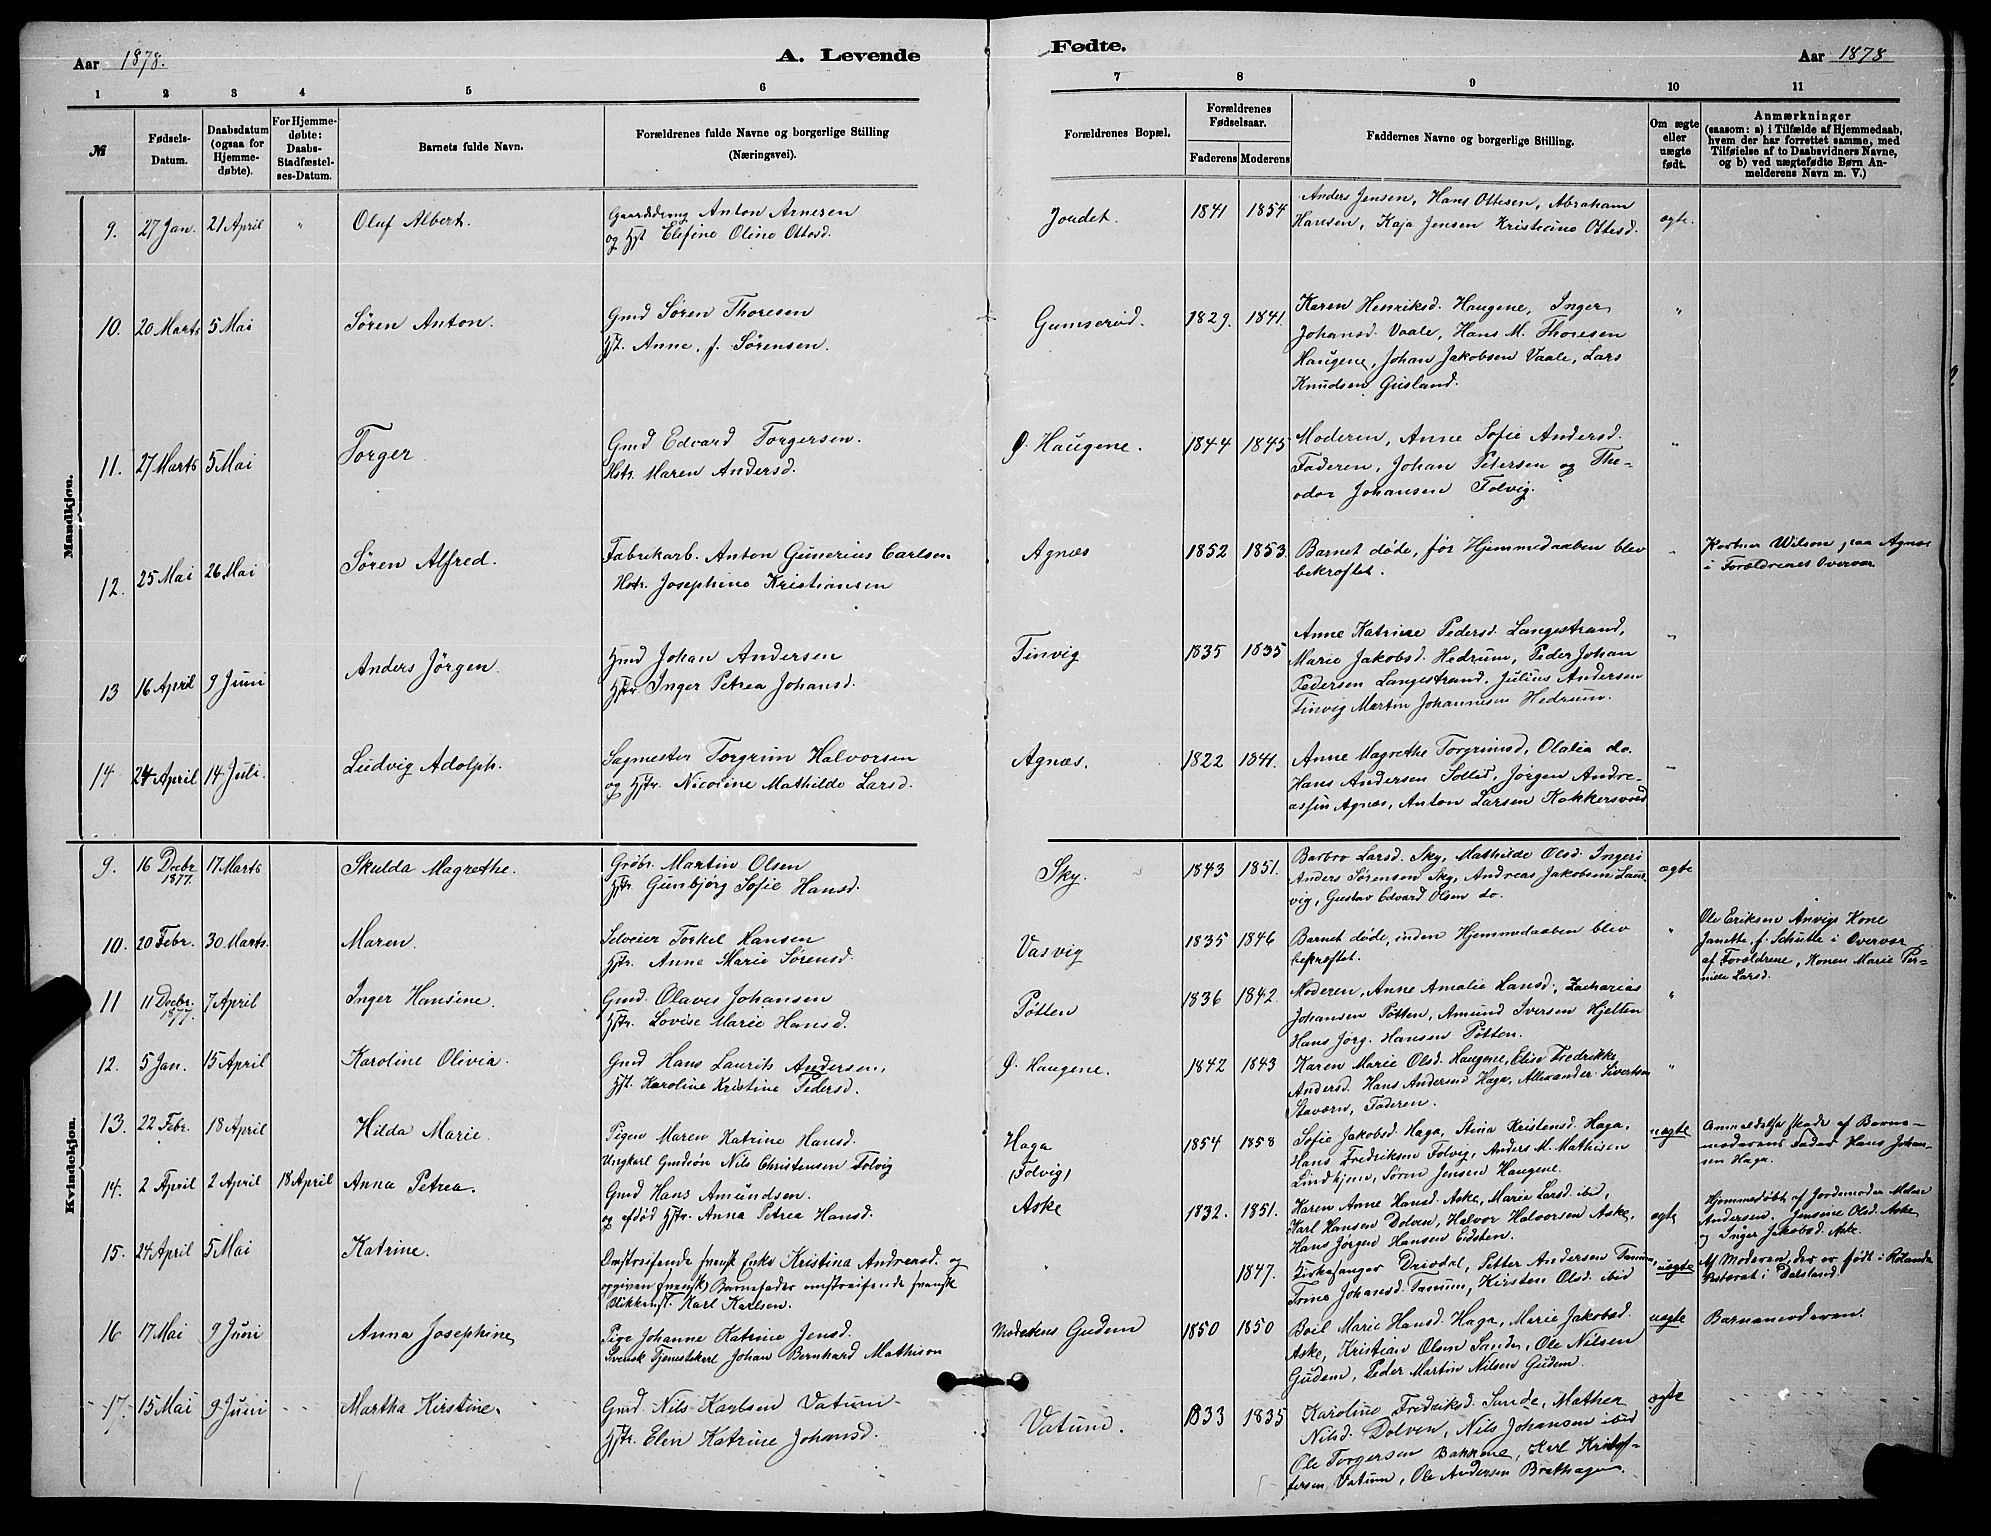 Aar 1878.
A. Levende
Fødte.
Aar 1878
1 2 3 4 5 6
7 8 9 10 11
№
Fødsels-
Datum.
Daabsdatum
(ogsaa for
Hjemme-
døbte).
For Hjemme-
døbte:
Daabs-
Stadfæstel-
ses-Datum.
Barnets fulde Navn.
Forældrenes fulde Navne og borgerlige Stilling
(Næringsvei).
Forældrenes Bopæl.
Forældrenes
Fødselsaar.
Faderens Moderens
Faddernes Navne og borgerlige Stilling.
Om ægte
eller
uægte
født.
Anmærkninger
(saasom: a) i Tilfælde af Hjemmedaab,
hvem der har forrettet samme, med
Tilføielse af to Daabsvidners Navne,
og b) ved uægtefødte Børn An-
melderens Navn m. V.)
Mandkjøn.
9. 27 Jan. 21 April " Oluf Albert.
Gaarddreng Anton Arnesen
og Hst Elefine Oline Ottosd.
Joudet. 1841 1854
Anders Jensen, Hans Ottesen, Abraham
Hansen, Kaja Jensen Kristiane Ottesd.
ægte.
10. 20 Marts 5 Mai Sören Anton.
Gmd Sören Thoresen
Hst. Anne, f. Sørensen.
Gumserød. 1829. 1841.
Karen Henriksd. Haugene, Inger
Johansd. Vaale, Hans M. Thoresen
Haugene, Johan Jakobsen Vaale, Lars
Knudsen Gusland.
"
11. 27 Marts 5 Mai Torger.
Gmd Edvard Torgersen.
Hstr. Maren Andersd.
Ø. Haugene. 1844 1845
Moderen, Anne Sofie Andersd.
Faderen, Johan Petersen og The-
odor Johansen Folvig.
"
12. 25 Mai 26 Mai Sören Alfred.
Fabrikarb. Anton Gunerius Carlsen
Hstr. Josephine Kristiansen
Agnæs 1852 1853.
Barnet døde, før Hjemmedaaben blev
bekræftet.
"
Kortner Wilson, paa Agnæs
i Forældrenes Overvær
13 16 April 9 Juni Anders Jörgen.
Gmd Johan Andersen
Hstr Inger Petrea Johansd.
Tinvig 1835 1835
Anne Katrine Pedersd. Langestrand,
Marie Jakobsd. Hedrum, Peder Johan
Pedersen Langestrand, Julius Andersen
Tinvig Martin Johannesen Hedrum.
"
14 24 April 14 Juli. Ludvig Adolph.
Sagmester Torgrim Halvorsen
og Hstr. Nicoline Mathilde Larsd.
Agnæs. 1822 1841.
Anne Magrethe Torgrimsd, Olalia do.
Hans Andersen Solløs, Jørgen Andre-
assen Agnæs, Anton Larsen Kakkersvold
"
Kvindekjøn.
9. 16 Decbr 1877. 17 Marts Skulda Magrethe.
Grdbr. Martin Olsen
Hstr Gunbjørg Sofie Hansd.
Sky. 1843 1851.
Barbro Larsd. Sky, Mathilde Olsd. Ingeri
Anders Sørensen Sky, Andreas Jakobsen Laur-
vig, Gustav Edvard Olsen do.
ægte
10. 20 Febr. 30 Marts. Maren.
Selveier Torkel Hansen
Hstr. Anne Marie Sørensd.
Vasvig 1835 1846
Barnet døde, inden Hjemmedaaben blev
bekræftet.
"
Ole Eriksen Anvigs Kone
Janette, f. Schulle i Overvær
af Forældrene, Konen Marie Per-
nille Larsd.
11 11 Decbr. 1877. 7 April Inger Hansine.
Gmd. Olaves Johansen
Hstr. Lovise Marie Hansd.
Pøtten 1836 1842.
Moderen, Anne Amalie Hansd., Zacharias
Johansen Pøtten, Amund Iversen Hjelten
Hans Jørg. Hansen Pøtten.
"
12. 5 Jan. 15 April Karoline Olivia.
Gmd Hans Laurits Andersen,
Hst. Karoline Kristine Pedersd.
Ø. Haugene. 1842 1843
Karen Marie Olsd. Haugene, Elise Fredrikke
Andersd. Hans Andersen Haga, Allexander Sivertsen
Staværn, Faderen.
"
13. 22 Febr. 18 April Hilda Marie.
Pigen Maren Katrine Hansd.
Ungkarl Gmdsøn Nils Christensen Folvig
Haga
(Folvig) 1854 1858
Sofie Jakobsd. Haga, Stina Kristensd. Haga,
Hans Fredriksen Folvig, Anders M. Mathisen
Lindhjem, Søren Jensen Haugene.
uægte
Anmeldelse skede af Barne-
moderens Fader Hans Johan-
sen Haga.
14. 2 April 2 April 18 April Anna Petrea.
Gmd Hans Amundsen.
og afdød Hstr. Anna Petrea Hansd.
Aske 1832. 1851.
Karen Anne Hansd. Aske, Marie Larsd. ibid,
Karl Hansen Dolven, Halvor Halvorsen Aske,
Hans Jørgen Hansen Eidsten.
ægte
Hjemmedøbt af Jordemoder Malene
Andersen. Jensine Olsd. Aske
og Inger Jakobsd. Aske.
15. 24 April 5 Mai Katrine.
Omstreifende svensk Enke Kristina Andreasd. og
opgiven (svensk) Barnefader omstreifende svensk
Blikkensl. Karl Karlsen.
" 1847.
Kirkesanger Driodal, Petter Andersen Tanum,
Trine Johansd. Tanum, Kirsten Olsd. ibid
uægte
Af Moderen, der er født i Rolanda
Pastorat i Dalsland.
16 17 Mai 9 Juni Anna Josephine
Pige Johanne Katrine Jensd.
Svensk Tjenestekarl Johan Bernhard Mathison
Moderens Gudem 1850 1850
Boil Marie Hansd. Haga, Marie Jakobsd.
Aske, Kristian Olsen Sanden, Ole Nilsen
Gudem, Peder Martin Nilsen Gudem.
uægte
Barnemoderen.
17. 15 Mai 9 Juni Martha Kirstine.
Gmd. Nils Karlsen Vatum
Hstr. Elen Katrine Johansd.
Vatum. 1833 1835
Karoline Fredriksd. Sande, Mathea
Nilsd. Dolven, Nils Johansen ibid
Ole Torgersen Bakkene, Karl Kristof-
fersen Vatum, Ole Andersen Brathagen.
ægte